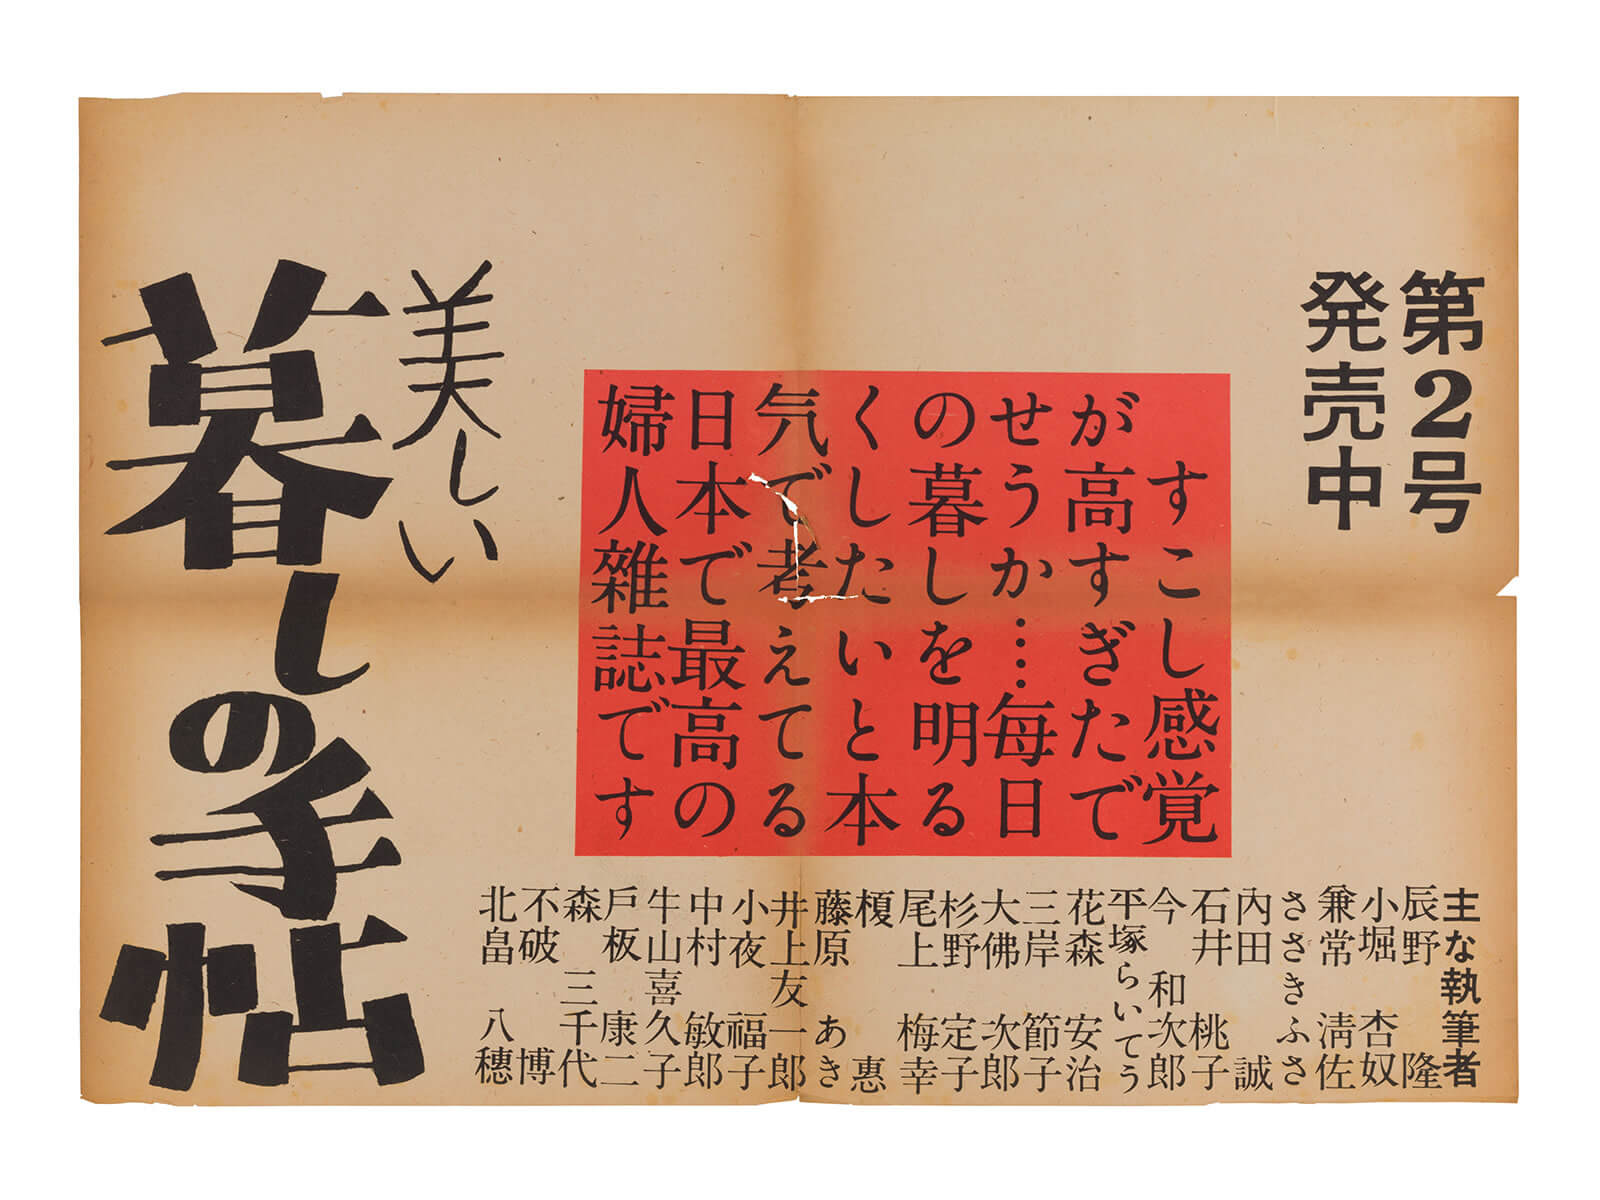 第2号
発売中
すこし感覚
が高すぎたで
せうか…毎日
の暮しを明る
くしたいと本
気で考えてる
日本で最高の
婦人雑誌です
美しい
暮しの手帖
主な執筆者
辰野隆
小堀杏奴
兼常清佐
ささきふさ
內田誠
石井桃子
今和次郎
平塚らいてう
花森安治
三岸節子
大佛次郎
杉野定子
尾上梅幸
榎惠
藤原あき
井上友一郎
小夜福子
中村敏郎
牛山喜久子
戶板康二
森三千代
不破博
北畠八穗